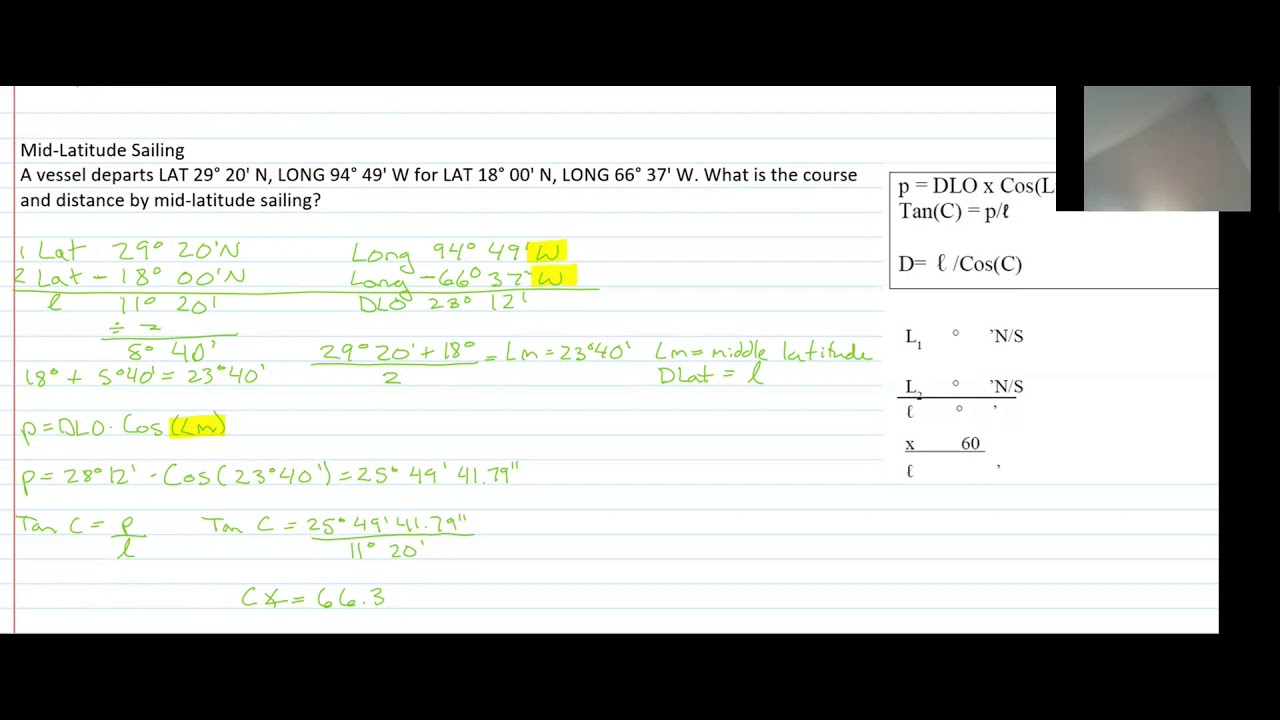 Mid-Latitude Sailing
A vessel departs LAT 29° 20' N, LONG 94° 49' W for LAT 18° 00' N, LONG 66° 37' W. What is the course
and distance by mid-latitude sailing?
1 Lat 29° 20' N Long 94° 49' W
2 Lat - 18° 00' N Long - 66° 37' W
l 11° 20' DLO 28° 12'
÷ 2
8° 40'
29° 20' + 18° = Lm = 23°40' Lm = middle latitude
2
18° + 5°40' = 23°40' DLat = l
p = DLO · Cos (Lm)
p = 28°12' · Cos (23°40') = 25° 49' 41.79"
Tan C = p Tan C = 25° 49' 41.79"
l 11° 20'
C∡ = 66.3
p = DLO x Cos(L
Tan(C) = p/ℓ
D= ℓ /Cos(C)
L1 ° 'N/S
L2 ° 'N/S
ℓ ° '
x 60
ℓ '